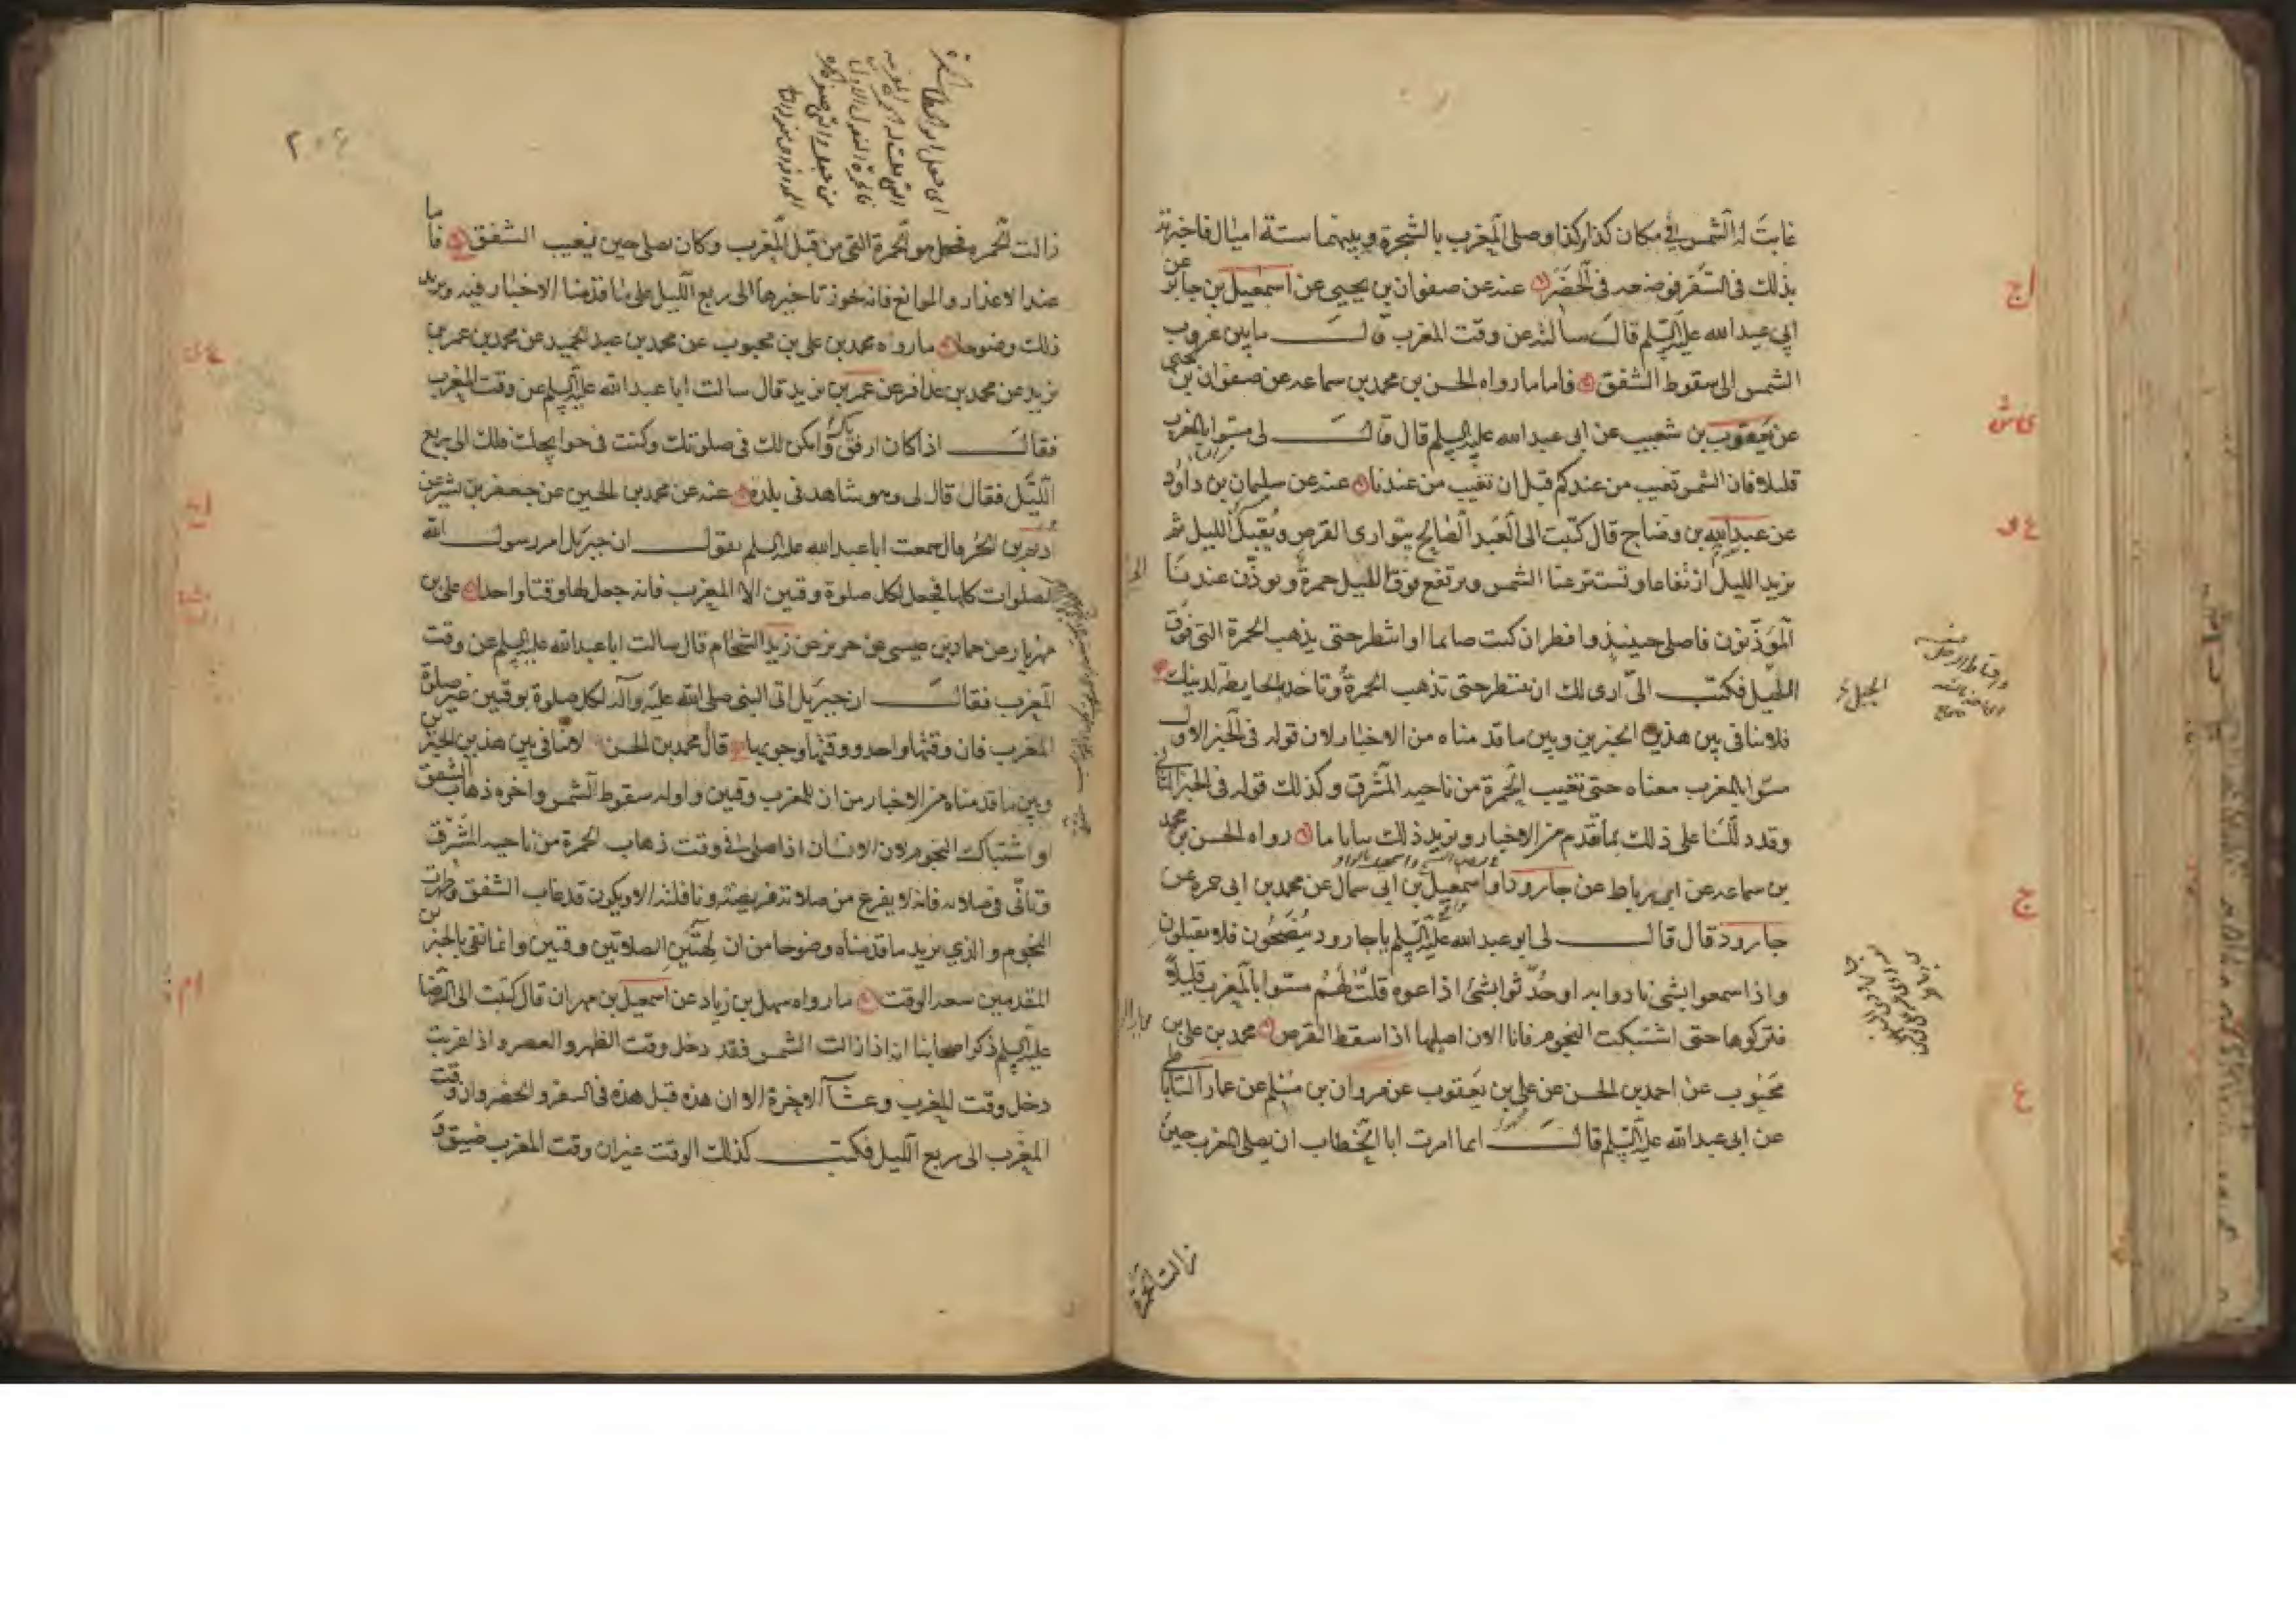 غابت له الشمس في مكان كذا وكذا وصلى المغرب بالشجرة وبينهما ستة اميال فاخبرته
بذلك في السفر فوضعه في الحضر عنه عن صفوان بن يحيى عن اسمعيل بن جابر عن
ابي عبد الله عليه السلم قال سالته عن وقت المغرب قال ما بين غروب
الشمس الى سقوط الشفق فاما ما رواه الحسن بن محمد بن سماعه عن صفوان بن يحيى
عن يعقوب بن شعيب عن ابى عبد الله عليه السلم قال قال لى مسوا بالمغرب
قليلا فان الشمس تغيب من عندكم قبل ان تغيب من عندنا عنه عن سليمان بن داود
عن عبد الله بن وضاح قال كتبت الى العبد الصالح يتوارى القرص ويقبل الليل ثم
يزيد الليل ارتفاعا وتستتر عنا الشمس وترتفع فوق الليل حمرة ويوذن عندنا
المؤذنون فاصلى حينئذ وافطر ان كنت صايما او انتظر حتى يذهب الحمرة التى فوق
الليل فكتب الىّ ارى لك ان تنتظر حتى تذهب الحمرة وتاخذ بالحايطة لدينك
فلا تنافى بين هذين الخبرين وبين ما قد مناه من الاخبار لان قوله فى الخبر الاول
مسوا بالمغرب معناه حتى تغيب الحمرة من ناحية المشرق وكذلك قوله فى الخبر الثانى
وقد دللنا على ذلك بما تقدم من الاخبار ويزيد ذلك بيانا ما رواه الحسن بن محمد
بن سماعه عن ابن رباط عن جارود او اسمعيل بن ابى سمال عن محمد بن ابى حمزه عن
جارود قال قال لى ابو عبد الله عليه السلم يا جارود ينصحون فلا يقبلون
واذا سمعوا بشى نادوا به او حدثوا بشئ اذاعوه قلت لهم مسوا بالمغرب قليلا
فتركوها حتى اشتبكت النجوم فانا الان اصليها اذا سقط القرص محمد بن على بن
محبوب عن احمد بن الحسن عن على بن يعقوب عن مروان بن مسلم عن عمار الساباطى
عن ابى عبد الله عليه السلم قال انما امرت ابا الخطاب ان يصلى المغرب حين
زالت الحمرة
٢٠٤
زالت الحمره فجعل هو الحمرة التى من قبل المغرب وكان يصلى حين يغيب الشفق فاما
عند الاعذار والموانع فانه يجوز تاخيرها الى ربع الليل على ما قدمنا الاخبار فيه ويزيد
ذلك وضوحا ما رواه محمد بن على بن محبوب عن محمد بن عبد الحميد عن محمد بن عمر بن
يزيد عن محمد بن عذافر عن عمر بن يزيد قال سالت ابا عبد الله عليه السلم عن وقت المغرب
فقال اذا كان ارفق بك وامكن لك فى صلوتك وكنت فى حوايجك فلك الى ربع
الليل فقال قال لى وهو شاهد فى بلده عنه عن محمد بن الحسين عن جعفر بن بشير عن
اديم بن الحر قال سمعت ابا عبد الله عليه السلم يقول ان جبرئيل امر رسول الله
بالصلوات كلها فجعل لكل صلوة وقتين الا المغرب فانه جعل لها وقتا واحدا على بن
مهزيار عن حماد بن عيسى عن حريز عن زيد الشحام قال سالت ابا عبد الله عليه السلم عن وقت
المغرب فقال ان جبرئيل اتى النبى صلى الله عليه وآله لكل صلوة بوقتين غير صلوة
المغرب فان وقتها واحد ووقتها وجوبها قال محمد بن الحسن لا تنافى بين هذين الخبرين
وبين ما قدمناه من الاخبار من ان للمغرب وقتين واوله سقوط الشمس واخره ذهاب الشفق
او اشتباك النجوم لان الانسان اذا صلى فى وقت ذهاب الحمرة من ناحية المشرق
وتانى فى صلاته فانه لا يفرغ من صلاته فريضته ونافلته الا ويكون قد غاب الشفق وظهرت
النجوم والذي يزيد ما قدمناه وضوحا من ان لهتين الصلاتين وقتين وانما نفى بالخبرين
المقدمين سعه الوقت ما رواه سهل بن زياد عن اسمعيل بن مهران قال كتبت الى الرضا
عليه السلم ذكر اصحابنا انه اذا زالت الشمس فقد دخل وقت الظهر والعصر واذا غربت
دخل وقت المغرب وعشآ الاخرة الا ان هذه قبل هذه فى السفر والحضر وان وقت
المغرب الى ربع الليل فكتب كذلك الوقت غير ان وقت المغرب ضيق و